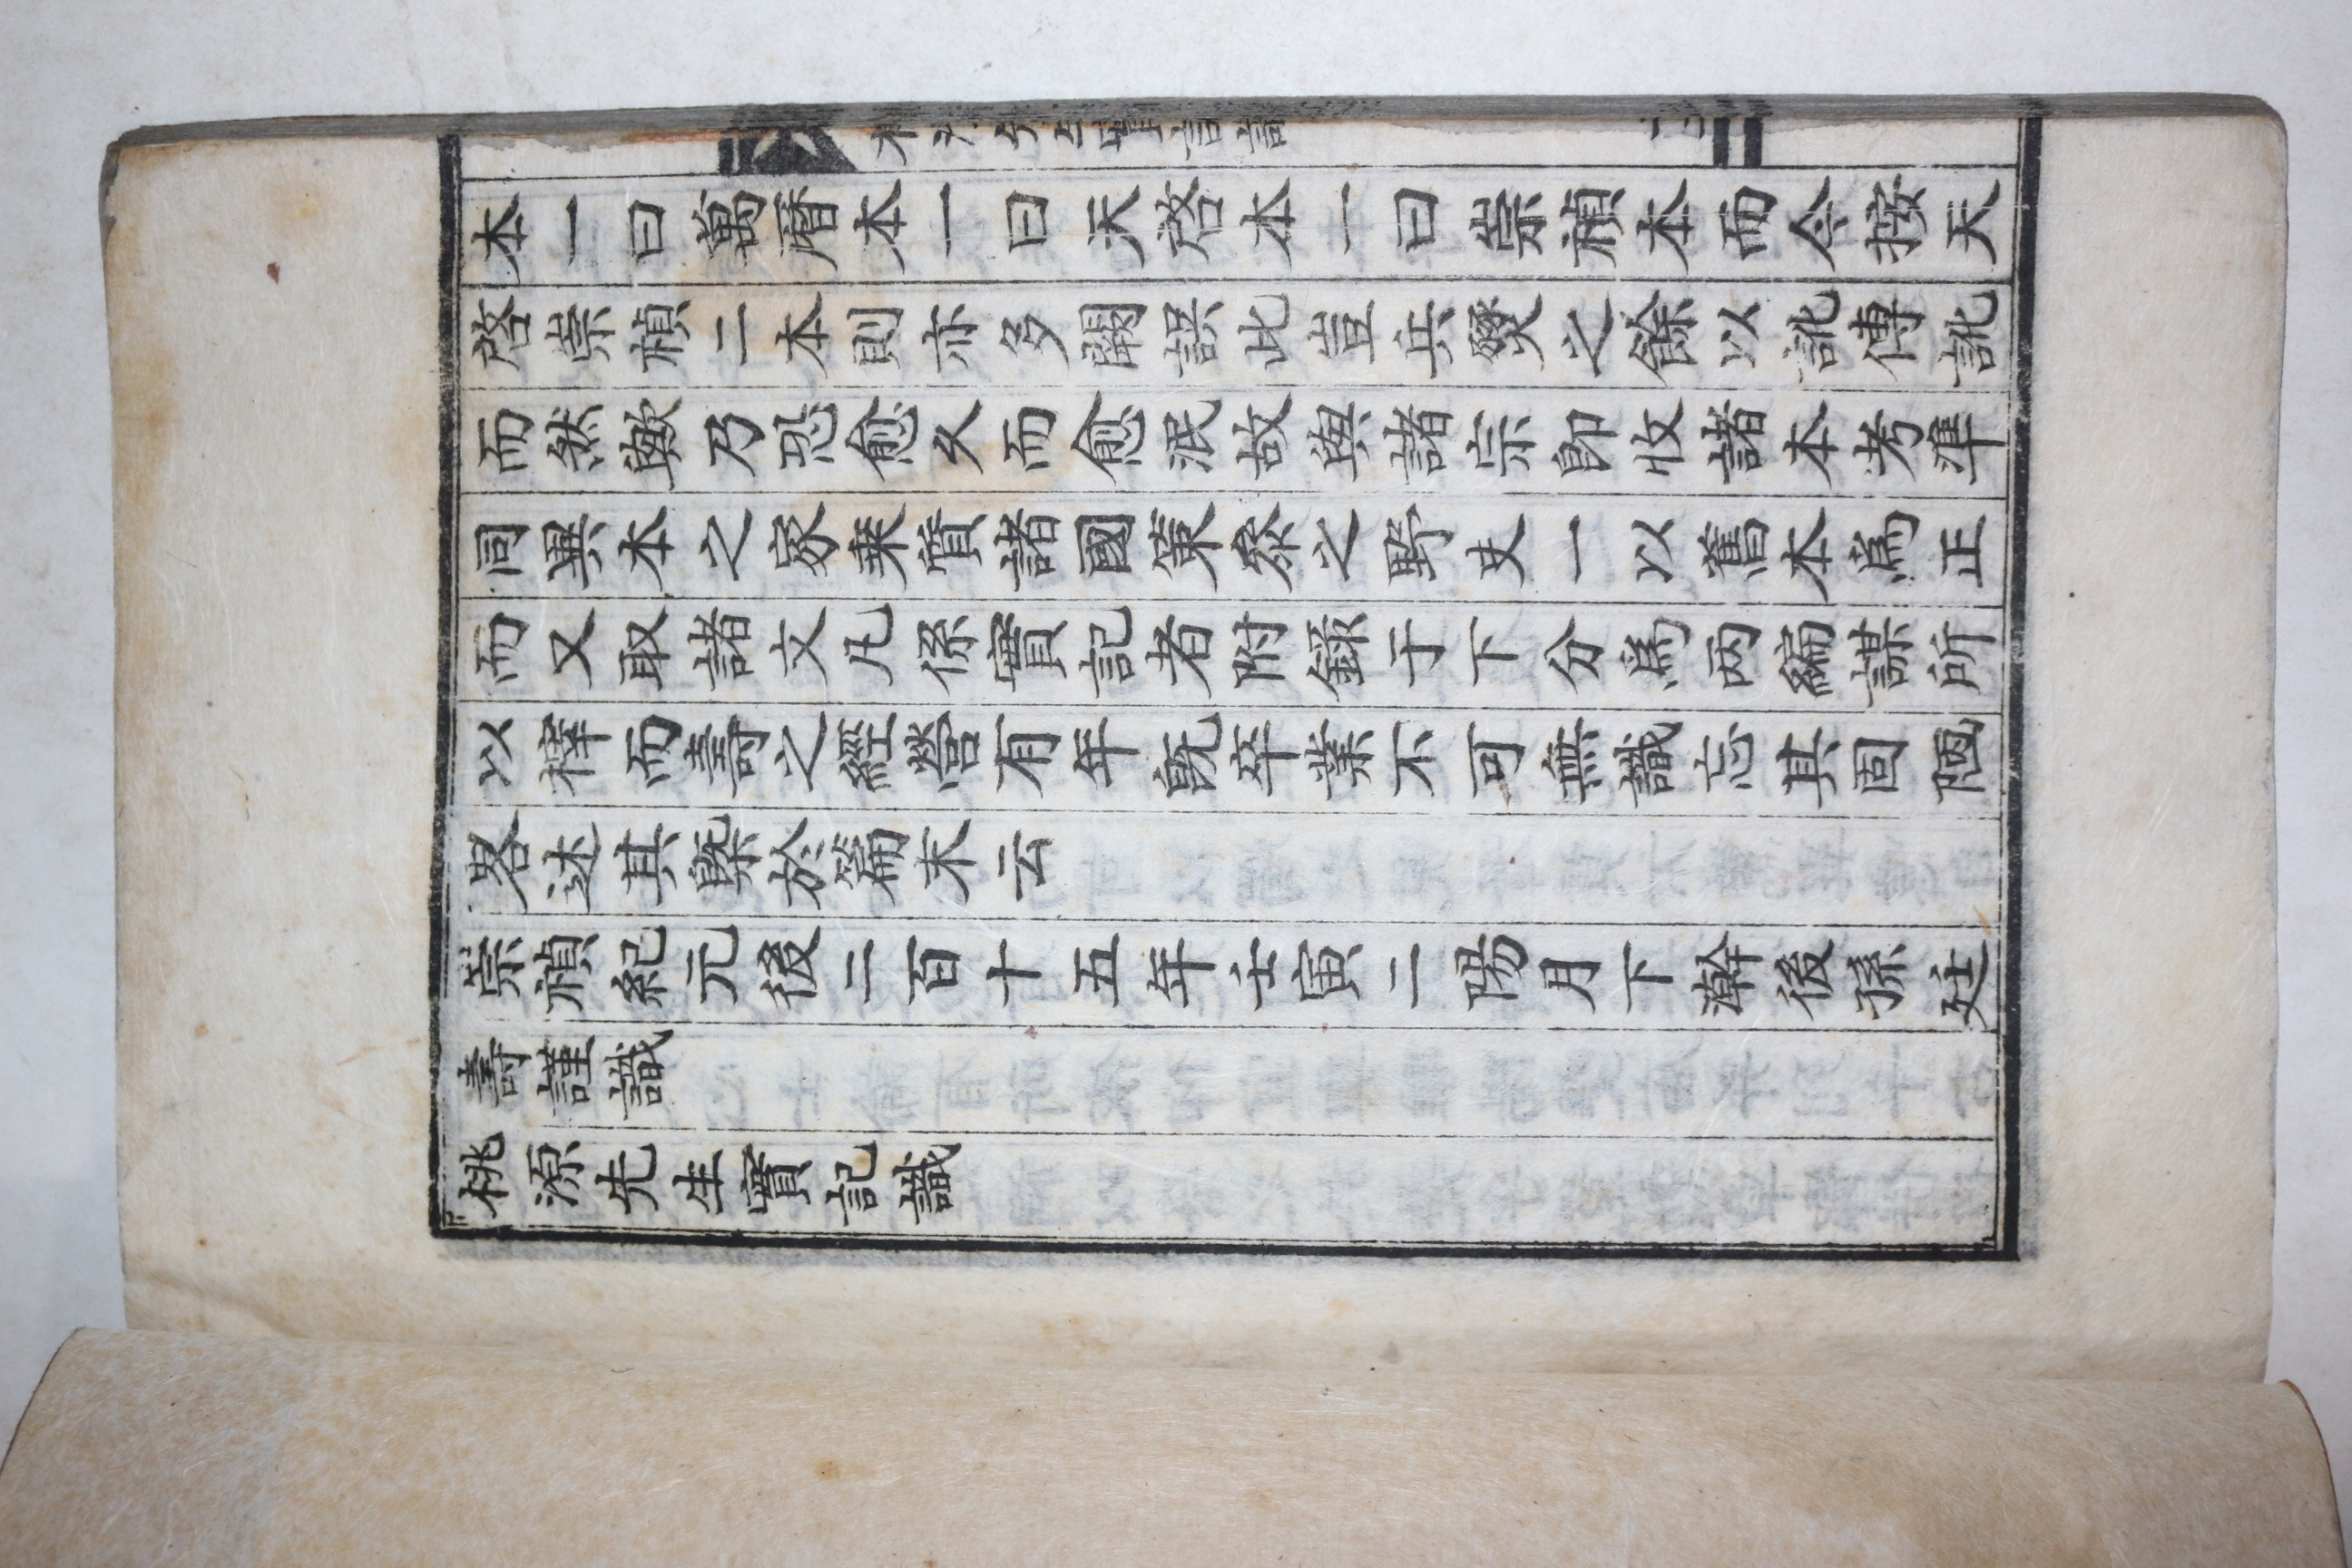 本一曰萬曆本一曰天啓本一曰崇禎本而今按天
啓崇禎二本則亦多闕誤此豈兵燹之餘以訛傳訛
而然歟乃恐愈久而愈泯故與諸宗卽收諸本考準
同異本之家乗質諸國策叅之野史一以舊本爲正
而又取諸文凡係實記者附錄于下分爲两編謀所
以梓而壽之經營有年旣卒業不可無識忘其固陋
畧述其槩於篇末云
崇禎紀元後二百十五年壬寅二陽月下澣後孫廷
壽謹識
桃源先生實記識